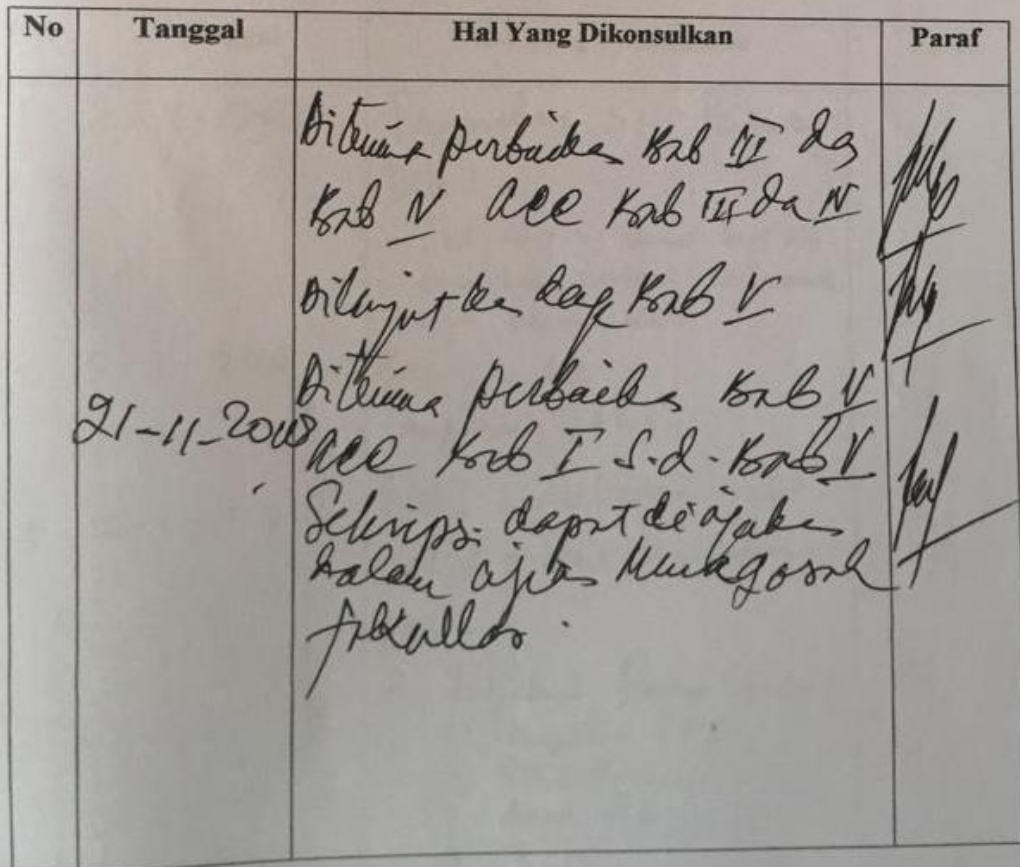 No Tanggal Hal Yang Dikonsulkan Paraf
Diterima perbaikan Bab III dan
Bab IV acc Bab III dan IV
Dilanjutkan dengan Bab V
Diterima perbaikan Bab V
21-11-2018
acc Bab I s.d. Bab V
Skripsi dapat diajukan
dalam ujian Munaqosah
fakultas.